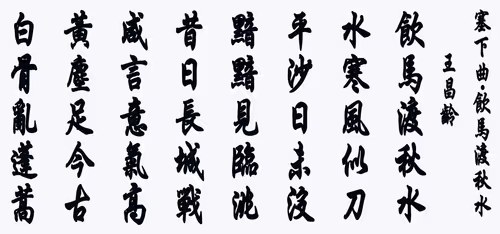 塞下曲·飲馬渡秋水
王昌齡
飲馬渡秋水
水寒風似刀
平沙日未沒
黯黯見臨洮
昔日長城戰
咸言意氣高
黃塵足今古
白骨亂蓬蒿